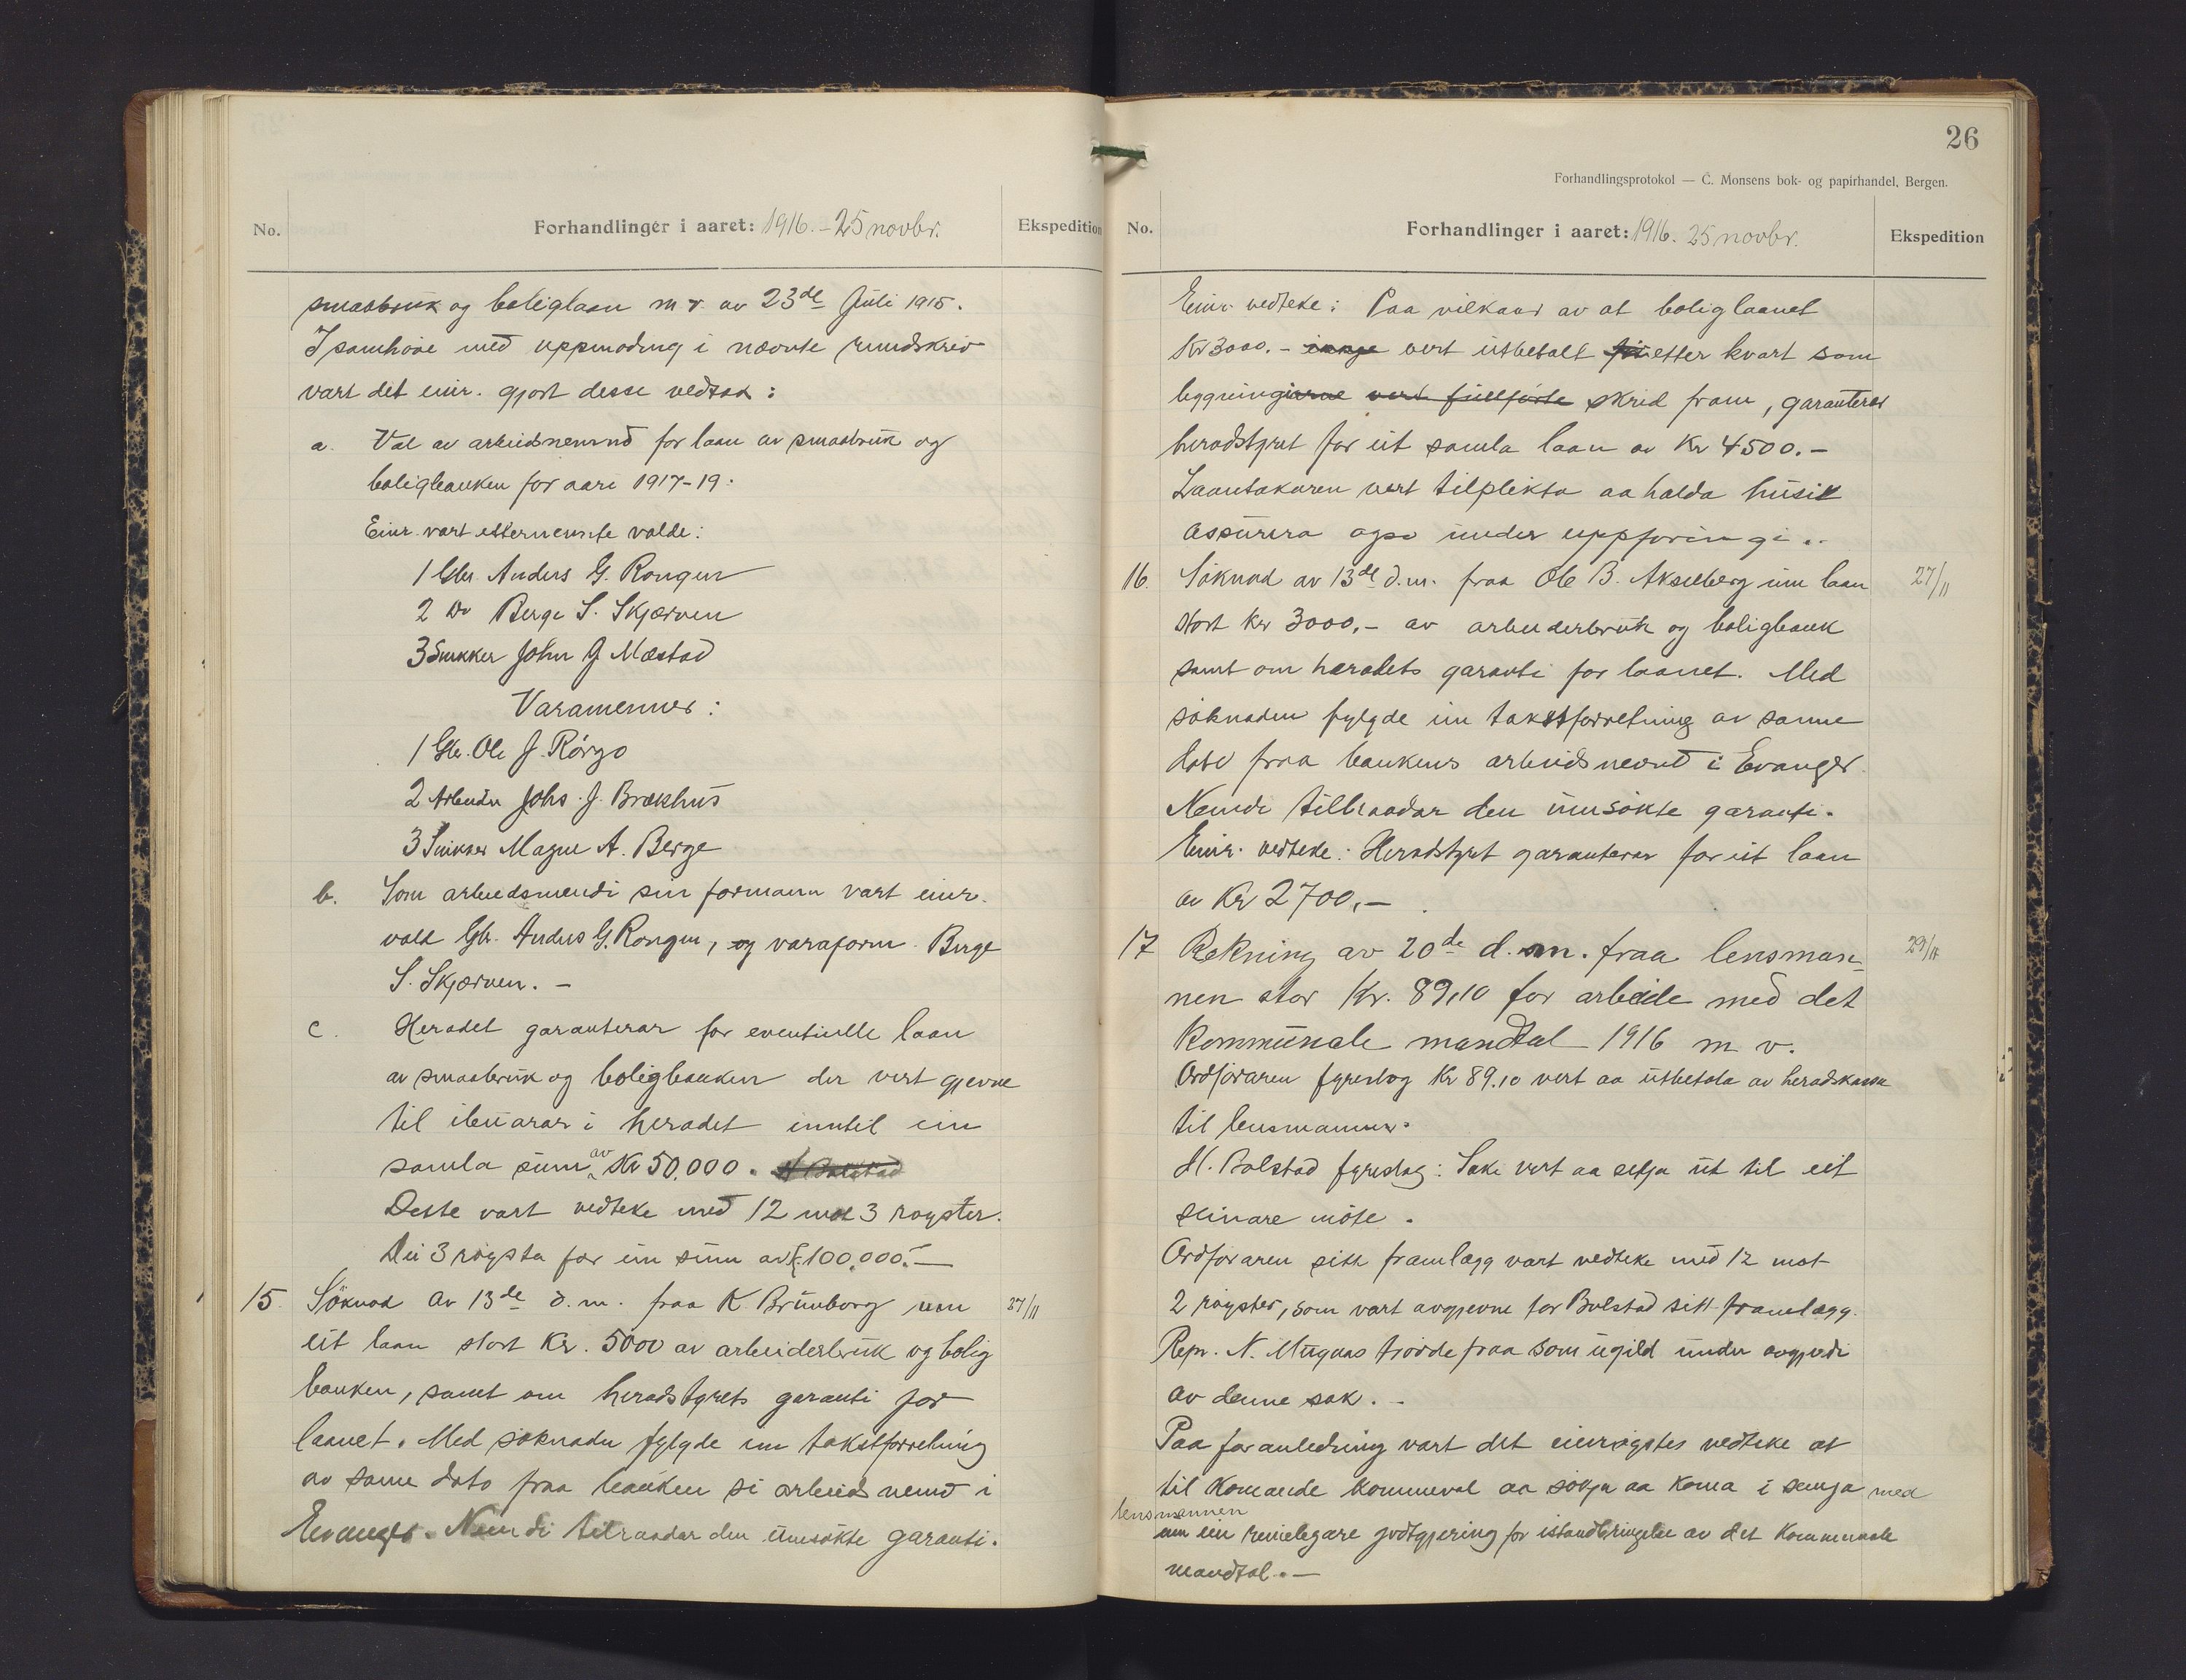 No. Forhandlinger i aaret: 1916. - 25 novbr. Ekspedition
smaabruk og boliglaan m v. av 23de Juli 1915.
I samhøve med uppmoding i nævnte rundskriv
vart det einr. gjort desse vedtak:
a. Val av arbeidsnemnd for laan av smaabruk og
boligbanken for aari 1917-19.
Einr. vart etternemnte valde:
1 Gbr. Anders G. Rongen
2 Do Berge S. Skjerven
3 Snikker John J Mæstad
Varamenner:
1 Gbr. Ole J. Rörgo
2 Arbeidar Johs. J. Brækhus
3 Snikker Magne A. Berge
b. Som arbeidsnemdi sin formann vart einr.
vald Gbr. Anders G. Rongen, og varaform. Berge
S. Skjerven. -
c. Heradet garanterar for eventuelle laan
av smaabruk og boligbanken der vert gjevne
til ibuarar i heradet inntil ein
samla sum av Kr 50,000. H Bolstad
Dette vart vedteke med 12 mot 3 røyster.
Dei 3 røysta for ein sum av K. 100,000.-
15. Söknad av 13de d.m. fraa K. Brunborg um 27/11
eit laan stort Kr. 5000 av arbeiderbruk og bolig
banken, samt om heradstyrets garanti for
laanet. Med søknaden fylgde ein takstforretning
av same dato fraa banken si arbeidsnemd i
Evanger. Nemdi tilraadar den umsøkte garanti.
26
Forhandlingsprotokol — C. Monsens bok- og papirhandel, Bergen.
No. Forhandlinger i aaret: 1916. 25 novbr. Ekspedition
Einr. vedteke: Paa vilkaar av at boliglaanet
Kr 3000.- vert utbetalt etter kvart som
byggningarne vert fullførte skrid fram, garanterer
heradstyret for eit samla laan av Kr 4500.-
Laantakaren vert tilplikta aa halda husit
assurera ogso under uppføringi..
16. Söknad av 13de d.m. fraa Ole B. Akselberg um laan 27/11
stort Kr 3000,- av arbeiderbruk og boligbank
samt om heradets garanti for laanet. Med
søknaden fylgde ein takstforretning av samme
dato fraa bankens arbeidsnevnd i Evanger.
Nemdi tilraadar den umsøkte garanti.
Einr. vedteke: Heradstyret garanterar for eit laan
av Kr 2700,-
17 Rekning av 20de d.m. fraa lensman- 29/11
nen stor Kr. 89,10 for arbeide med det
kommunale mandtal 1916 m v.
Ordføraren fyreslog Kr 89.10 vert aa utbetala av heradskassa
til lensmannen.
H. Bolstad fyreslog: Saki vert aa setja ut til eit
seinare møte.
Ordføraren sitt framlegg vart vedteke med 12 mot
2 røyster, som vart avgjevne for Bolstad sitt framlegg.
Repr. N. Mugaas traadde fraa som ugild under avgjerdi
av denne sak. -
Paa foranledning vart det einrøystes vedteke at
til komande kommuneval aa søkja aa koma i semja med
lensmannen
um ein rimelegare godtgjering for istandbringelse av det kommunale
mandtal. -